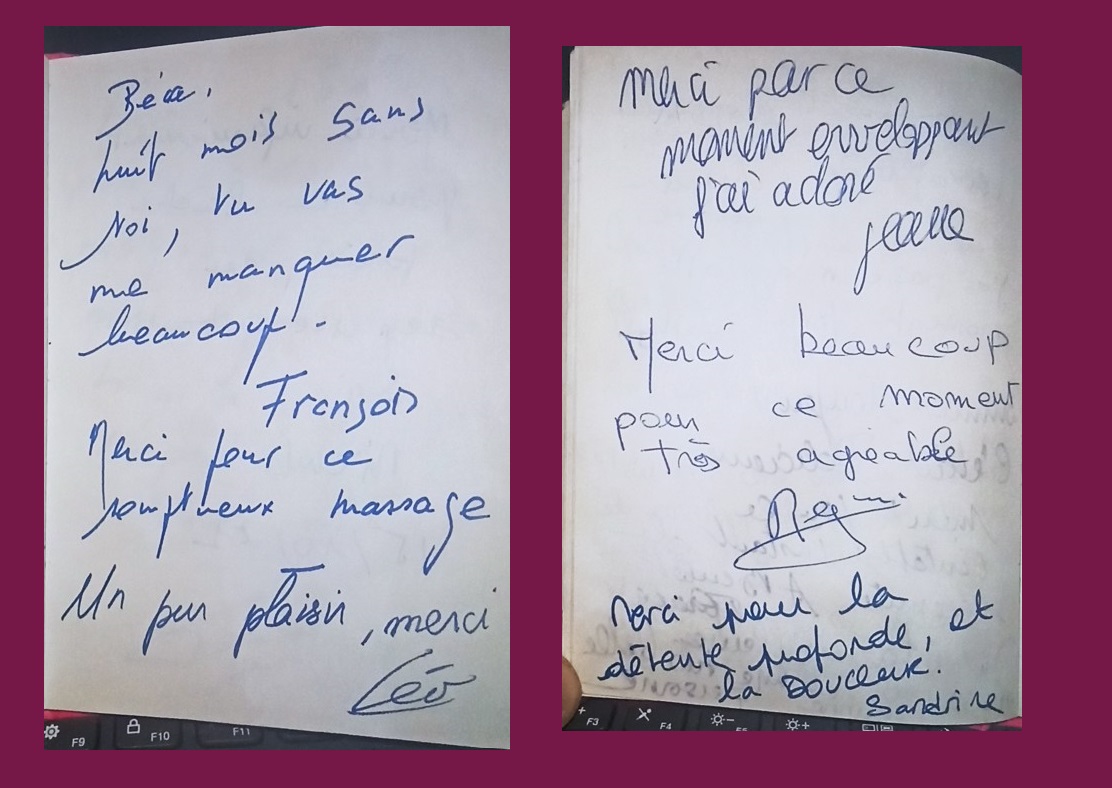 Béa,
huit mois sans
toi, tu vas
me manquer
beaucoup.
François
Merci pour ce
somptueux massage
Un pur plaisir, merci
Léo
F9
F10
F11
Merci par ce
moment enveloppant
j'ai adoré
Jeanne
Merci beaucoup
pour ce moment
très agréable
Merci pour la
détente profonde, et
la DOUCEUR.
Sandrine
F3
F4
F5